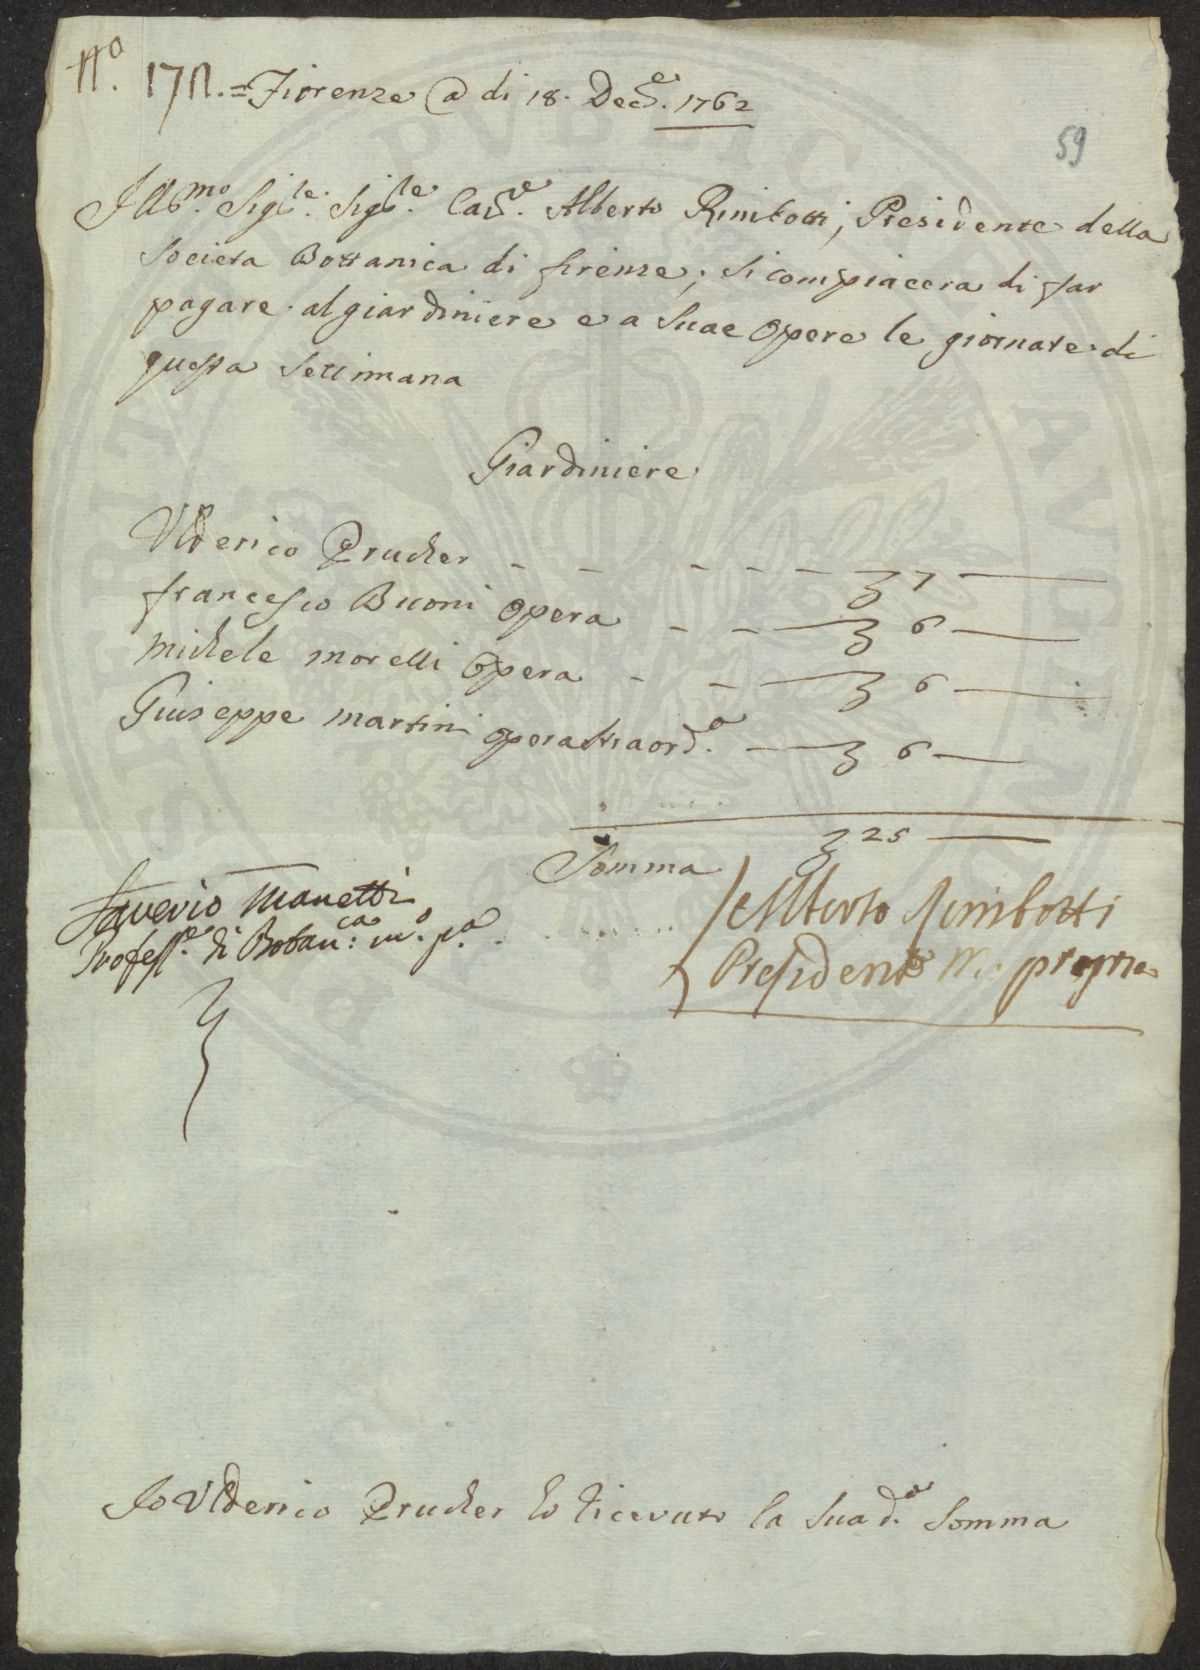 N.º 171. = Fiorenze @ di 18. Dec.e 1762
59
Ill.mo Sig.le Sig.le Cav.e Alberto Rimbotti, Presidente della
Societa Bottanica di firenze, si compiacera di far
pagare al giardiniere e a Suae Opere le giornate di
questa Settimana
Giardiniere
Ulderico Prucker - - - - - 7
francesco Buoni opera - - 6
Michele morelli opera - - 6
Giuseppe martini opera straord.a 6
Somma 25
Saverio Manetti
Profess.e di Botan.ca m.o p.a
Alberto Rimbotti
Presidente m. propria
Io Ulderico Prucker ho ricevuto la Sua d.a Somma